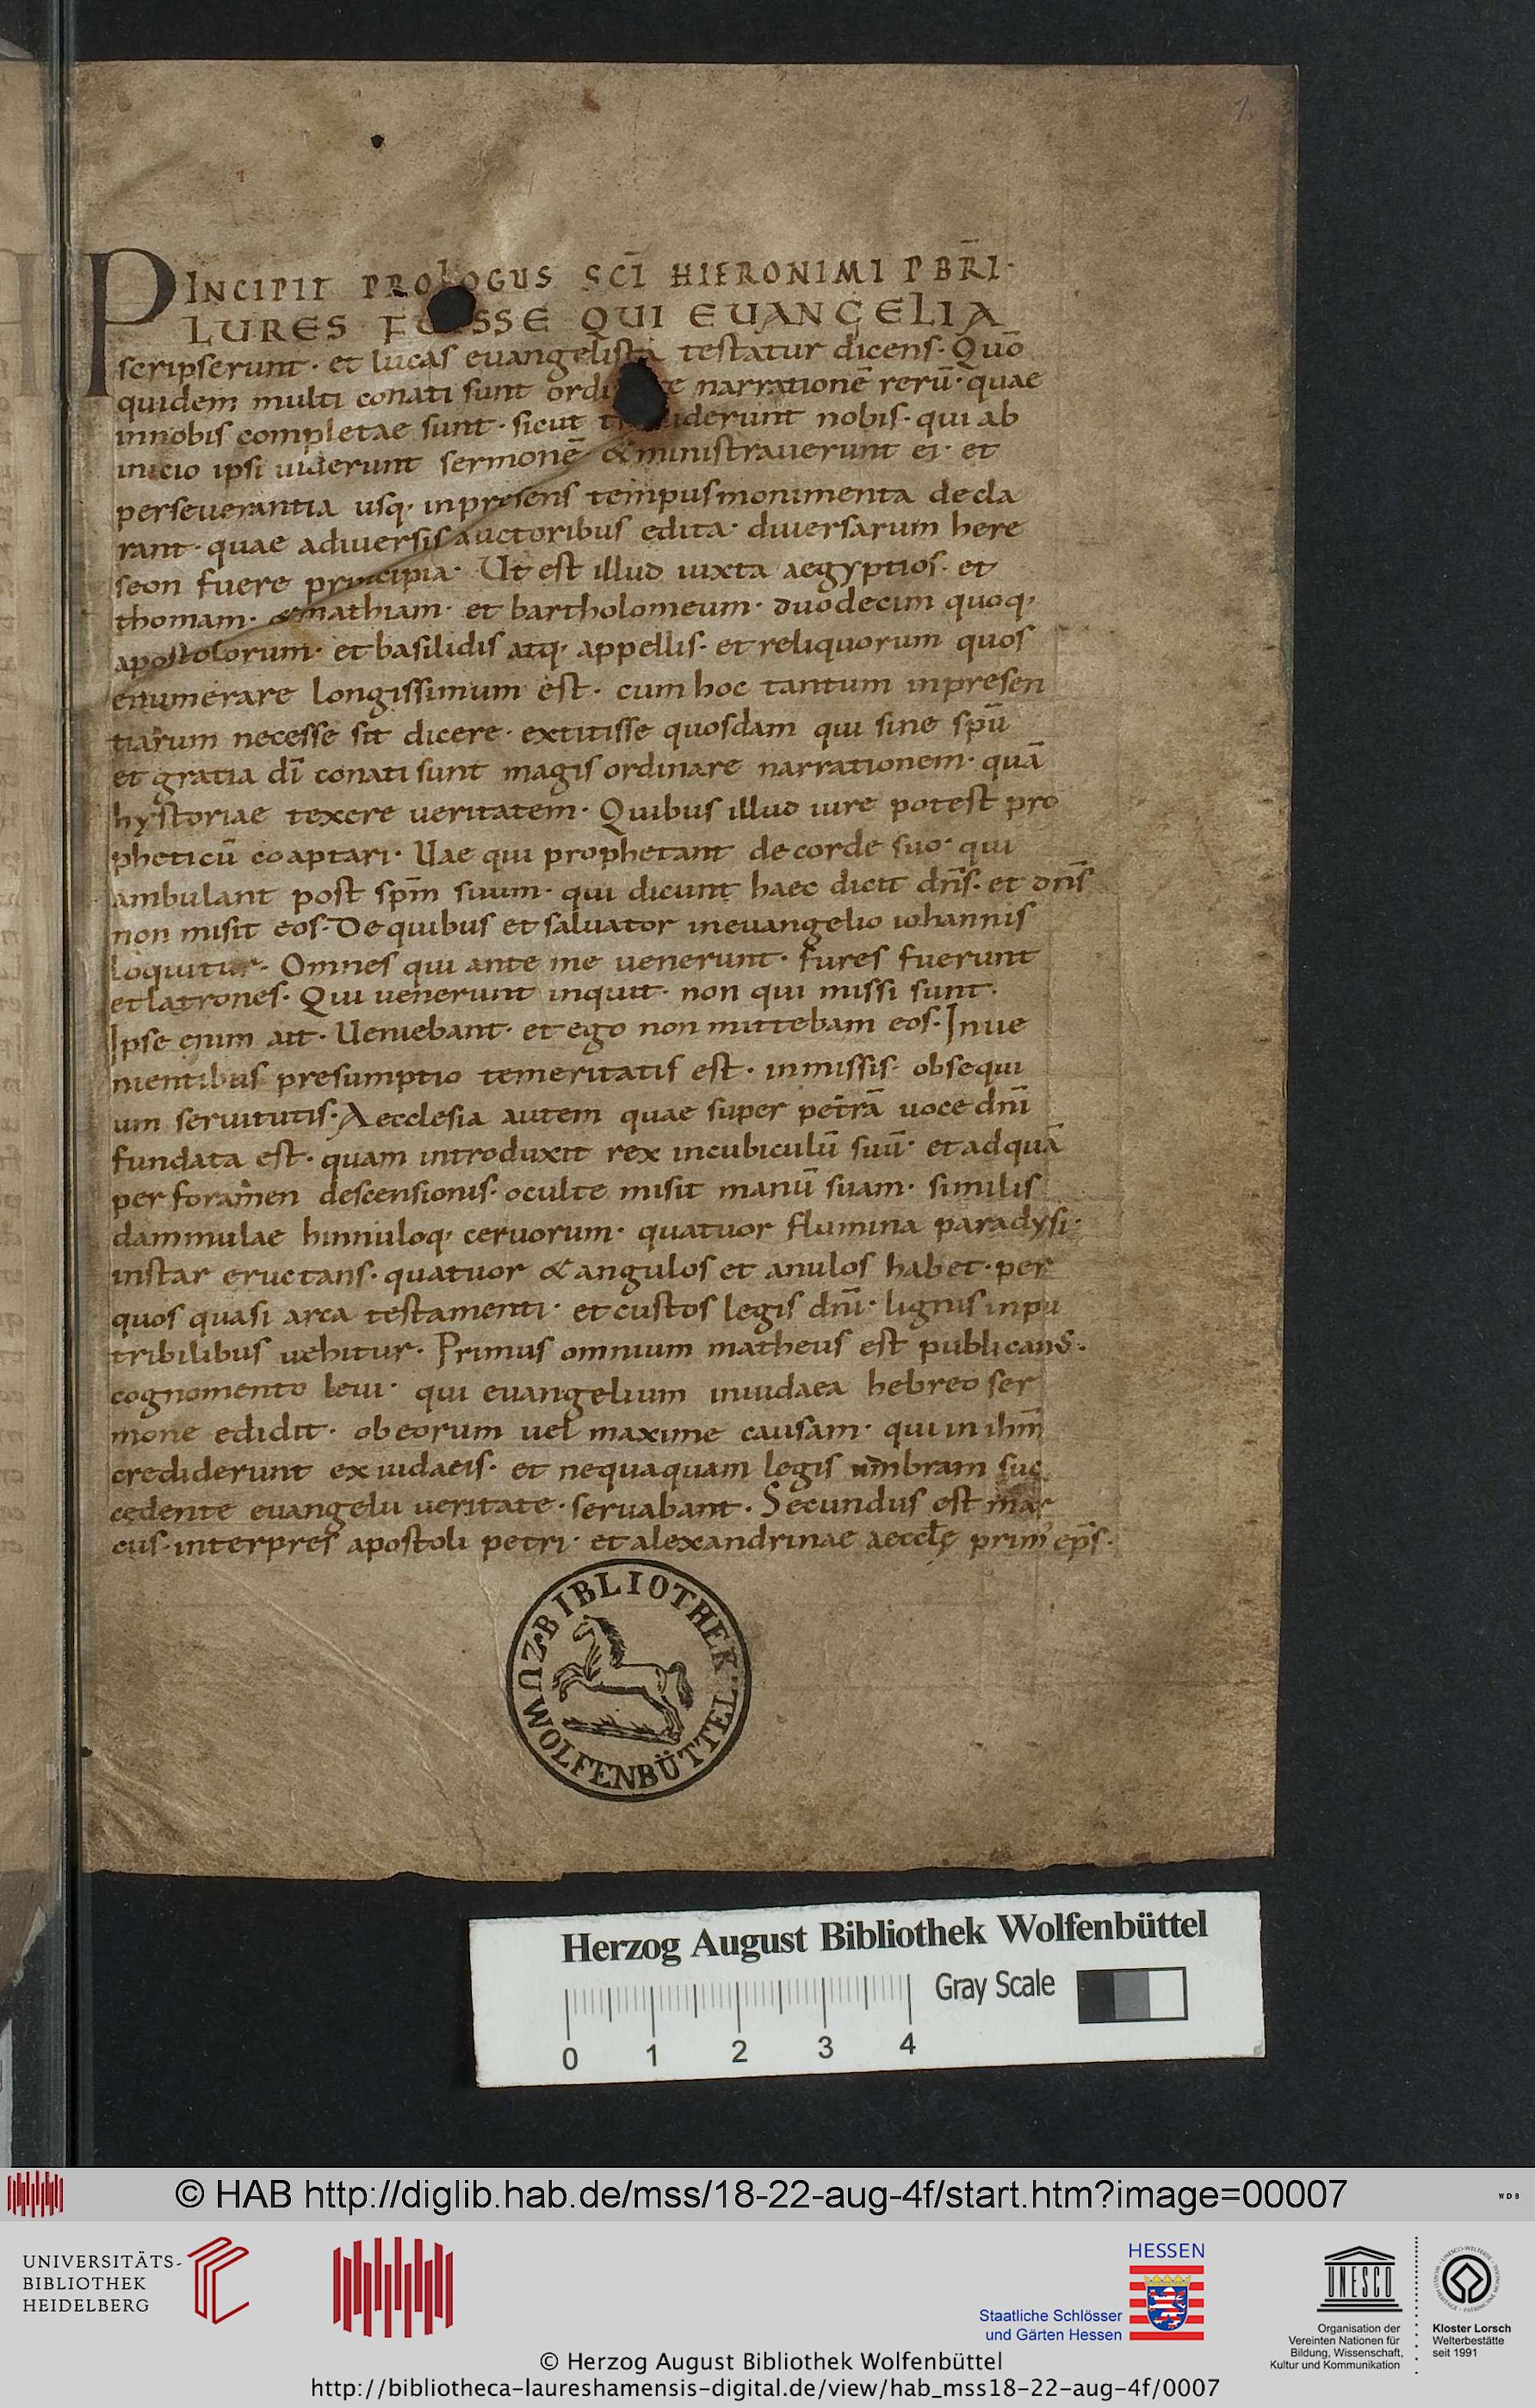 1
INCIPIT PROLOGUS SCĪ HIERONIMI PBRĪ·
PLURES FUISSE QUI EUANGELIA
scripserunt· et lucas euangelista testatur dicens· Quō
quidem multi conati sunt ordi re narrationē rerū· quae
innobis completae sunt· sicut tradiderunt nobis· qui ab
inicio ipsi uiderunt sermonē & ministrauerunt ei· et
perseuerantia usq; inpresens tempus monimenta decla
rant· quae adiuersis auctoribus edita· diuersarum here
seon fuere principia· Ut est illud iuxta aegyptios· et
thomam· & mathiam· et bartholomeum· duodecim quoq;
apostolorum· et basilidis atq; appellis· et reliquorum quos
enumerare longissimum est· cum hoc tantum inpresen
tiarum necesse sit dicere· extitisse quosdam qui sine spū
et gratia dī conati sunt magis ordinare narrationem· quā
hystoriae texere ueritatem· Quibus illud iure potest pro
pheticū coaptari· Uae qui prophetant de corde suo· qui
ambulant post spm̄ suum· qui dicunt haec dicit dn̄s· et dn̄s
non misit eos· De quibus et saluator ineuangelio iohannis
loquitur· Omnes qui ante me uenerunt· fures fuerunt
et latrones· Qui uenerunt inquit· non qui missi sunt·
Ipse enim ait· Ueniebant· et ego non mittebam eos· Inue
nientibus presumptio temeritatis est· inmissis· obsequi
um seruitutis· Aecclesia autem quae super petrā uoce dn̄i
fundata est· quam introduxit rex incubiculū suū· et adquā
per foramen descensionis· oculte misit manū suam· similis
dammulae hinnuloq; ceruorum· quatuor flumina paradysi·
instar eructans· quatuor & angulos et anulos habet· per
quos quasi arca testamenti· et custos legis dn̄i· lignis inpu
tribilibus uehitur· Primus omnium matheus est publicans·
cognomento leui· qui euangelium iniudaea hebreo ser
mone edidit· ob eorum uel maxime causam· qui in ihm̄
crediderunt ex iudaeis· et nequaquam legis umbram suc
cedente euangelii ueritate· seruabant· Secundus est mar
cus· interpres apostoli petri· et alexandrinae aecclę prim' ep̄s·
BIBLIOTHEK
ZU
WOLFENBÜTTEL
Herzog August Bibliothek Wolfenbüttel
Gray Scale
0 1 2 3 4
© HAB http://diglib.hab.de/mss/18-22-aug-4f/start.htm?image=00007
WDB
UNIVERSITÄTS-
BIBLIOTHEK
HEIDELBERG
HESSEN
Staatliche Schlösser
und Gärten Hessen
UNESCO
Organisation der
Vereinten Nationen für
Bildung, Wissenschaft,
Kultur und Kommunikation
Kloster Lorsch
Welterbestätte
seit 1991
© Herzog August Bibliothek Wolfenbüttel
http://bibliotheca-laureshamensis-digital.de/view/hab_mss18-22-aug-4f/0007